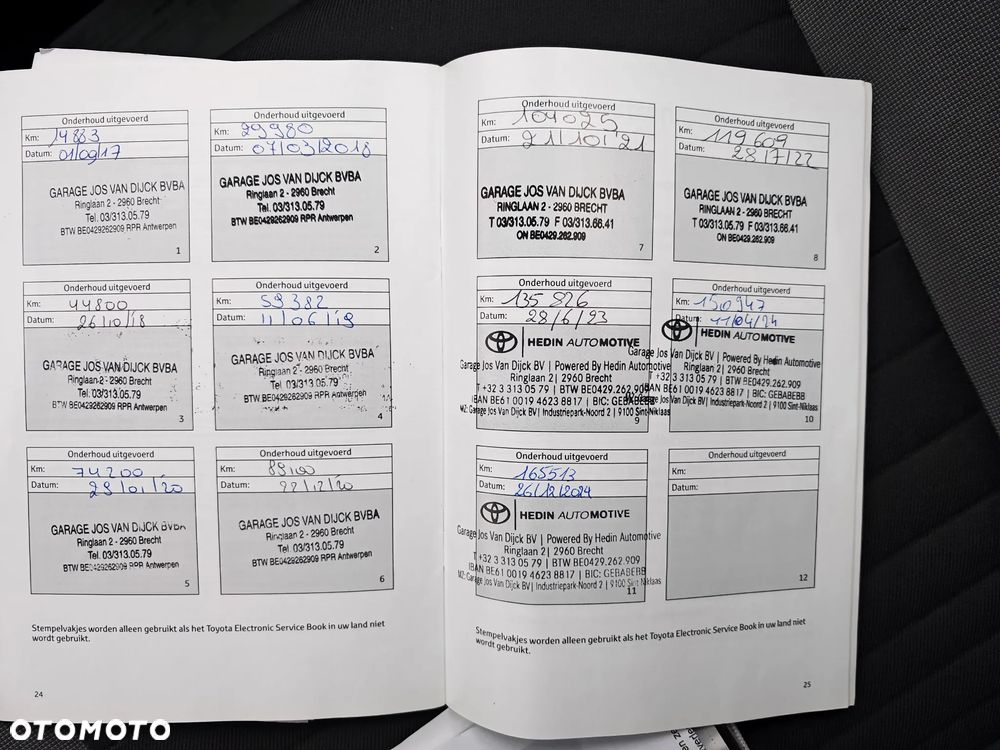 Onderhoud uitgevoerd
Km: 14883
Datum: 01/09/17
GARAGE JOS VAN DIJCK BVBA
Ringlaan 2 - 2960 Brecht
Tel. 03/313.05.79
BTW BE0429262909 RPR Antwerpen
1
Onderhoud uitgevoerd
Km: 29980
Datum: 07/03/2018
GARAGE JOS VAN DIJCK BVBA
Ringlaan 2 - 2960 Brecht
Tel. 03/313.05.79
BTW BE0429262909 RPR Antwerpen
2
Onderhoud uitgevoerd
Km: 44800
Datum: 26/10/18
GARAGE JOS VAN DIJCK BVBA
Ringlaan 2 - 2960 Brecht
Tel. 03/313.05.79
BTW BE0429262909 RPR Antwerpen
3
Onderhoud uitgevoerd
Km: 59382
Datum: 11/06/19
GARAGE JOS VAN DIJCK BVBA
Ringlaan 2 - 2960 Brecht
Tel. 03/313.05.79
BTW BE0429262909 RPR Antwerpen
4
Onderhoud uitgevoerd
Km: 74200
Datum: 29/01/20
GARAGE JOS VAN DIJCK BVBA
Ringlaan 2 - 2960 Brecht
Tel. 03/313.05.79
BTW BE0429262909 RPR Antwerpen
5
Onderhoud uitgevoerd
Km:
Datum: 22/12/20
GARAGE JOS VAN DIJCK BVBA
Ringlaan 2 - 2960 Brecht
Tel. 03/313.05.79
BTW BE0429262909 RPR Antwerpen
6
Stempelvakjes worden alleen gebruikt als het Toyota Electronic Service Book in uw land niet
wordt gebruikt.
24
Onderhoud uitgevoerd
Km: 104025
Datum: 21/10/'21
GARAGE JOS VAN DIJCK BVBA
RINGLAAN 2 - 2960 BRECHT
T 03/313.05.79 F 03/313.66.41
ON BE0429.262.909
7
Onderhoud uitgevoerd
Km: 119 609
Datum: 28/7/22
GARAGE JOS VAN DIJCK BVBA
RINGLAAN 2 - 2960 BRECHT
T 03/313.05.79 F 03/313.66.41
ON BE0429.262.909
8
Onderhoud uitgevoerd
Km: 135 826
Datum: 28/6/23
HEDIN AUTOMOTIVE
Garage Jos Van Dijck BV | Powered By Hedin Automotive
Ringlaan 2 | 2960 Brecht
T +32 3 313 05 79 | BTW BE0429.262.909
IBAN BE61 0019 4623 8817 | BIC: GEBABEBB
M2: Garage Jos Van Dijck BV | Industriepark-Noord 2 | 9100 Sint-Niklaas
9
Onderhoud uitgevoerd
Km: 150947
Datum: 11/04/24
HEDIN AUTOMOTIVE
Garage Jos Van Dijck BV | Powered By Hedin Automotive
Ringlaan 2 | 2960 Brecht
T +32 3 313 05 79 | BTW BE0429.262.909
IBAN BE61 0019 4623 8817 | BIC: GEBABEBB
Garage Jos Van Dijck BV | Industriepark-Noord 2 | 9100 Sint-Niklaas
10
Onderhoud uitgevoerd
Km: 165513
Datum: 26/12/2024
HEDIN AUTOMOTIVE
Garage Jos Van Dijck BV | Powered By Hedin Automotive
Ringlaan 2 | 2960 Brecht
T +32 3 313 05 79 | BTW BE0429.262.909
IBAN BE61 0019 4623 8817 | BIC: GEBABEBB
M2: Garage Jos Van Dijck BV | Industriepark-Noord 2 | 9100 Sint Niklaas
11
Onderhoud uitgevoerd
Km:
Datum:
12
Stempelvakjes worden alleen gebruikt als het Toyota Electronic Service Book in uw land niet
wordt gebruikt.
25
OTOMOTO